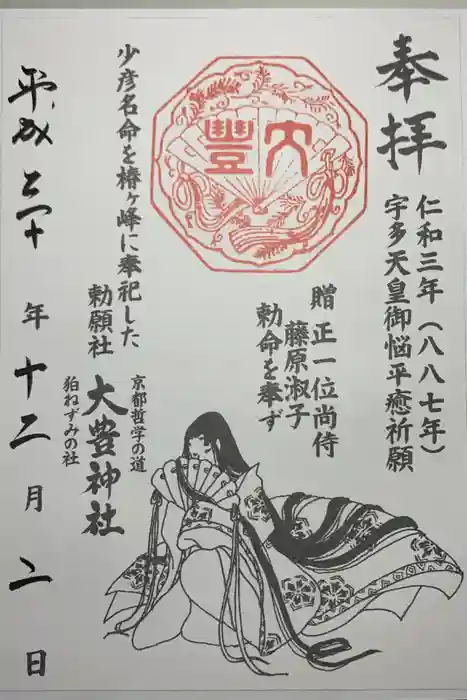 奉拝
仁和三年(八八七年)
宇多天皇御悩平癒祈願
贈 正一位尚侍
藤原淑子
勅命を奉ず
大豐
少彦名命を椿ヶ峰に奉祀した
勅願社
京都哲学の道
大豊神社
狛ねずみの社
平成三十年十二月二日